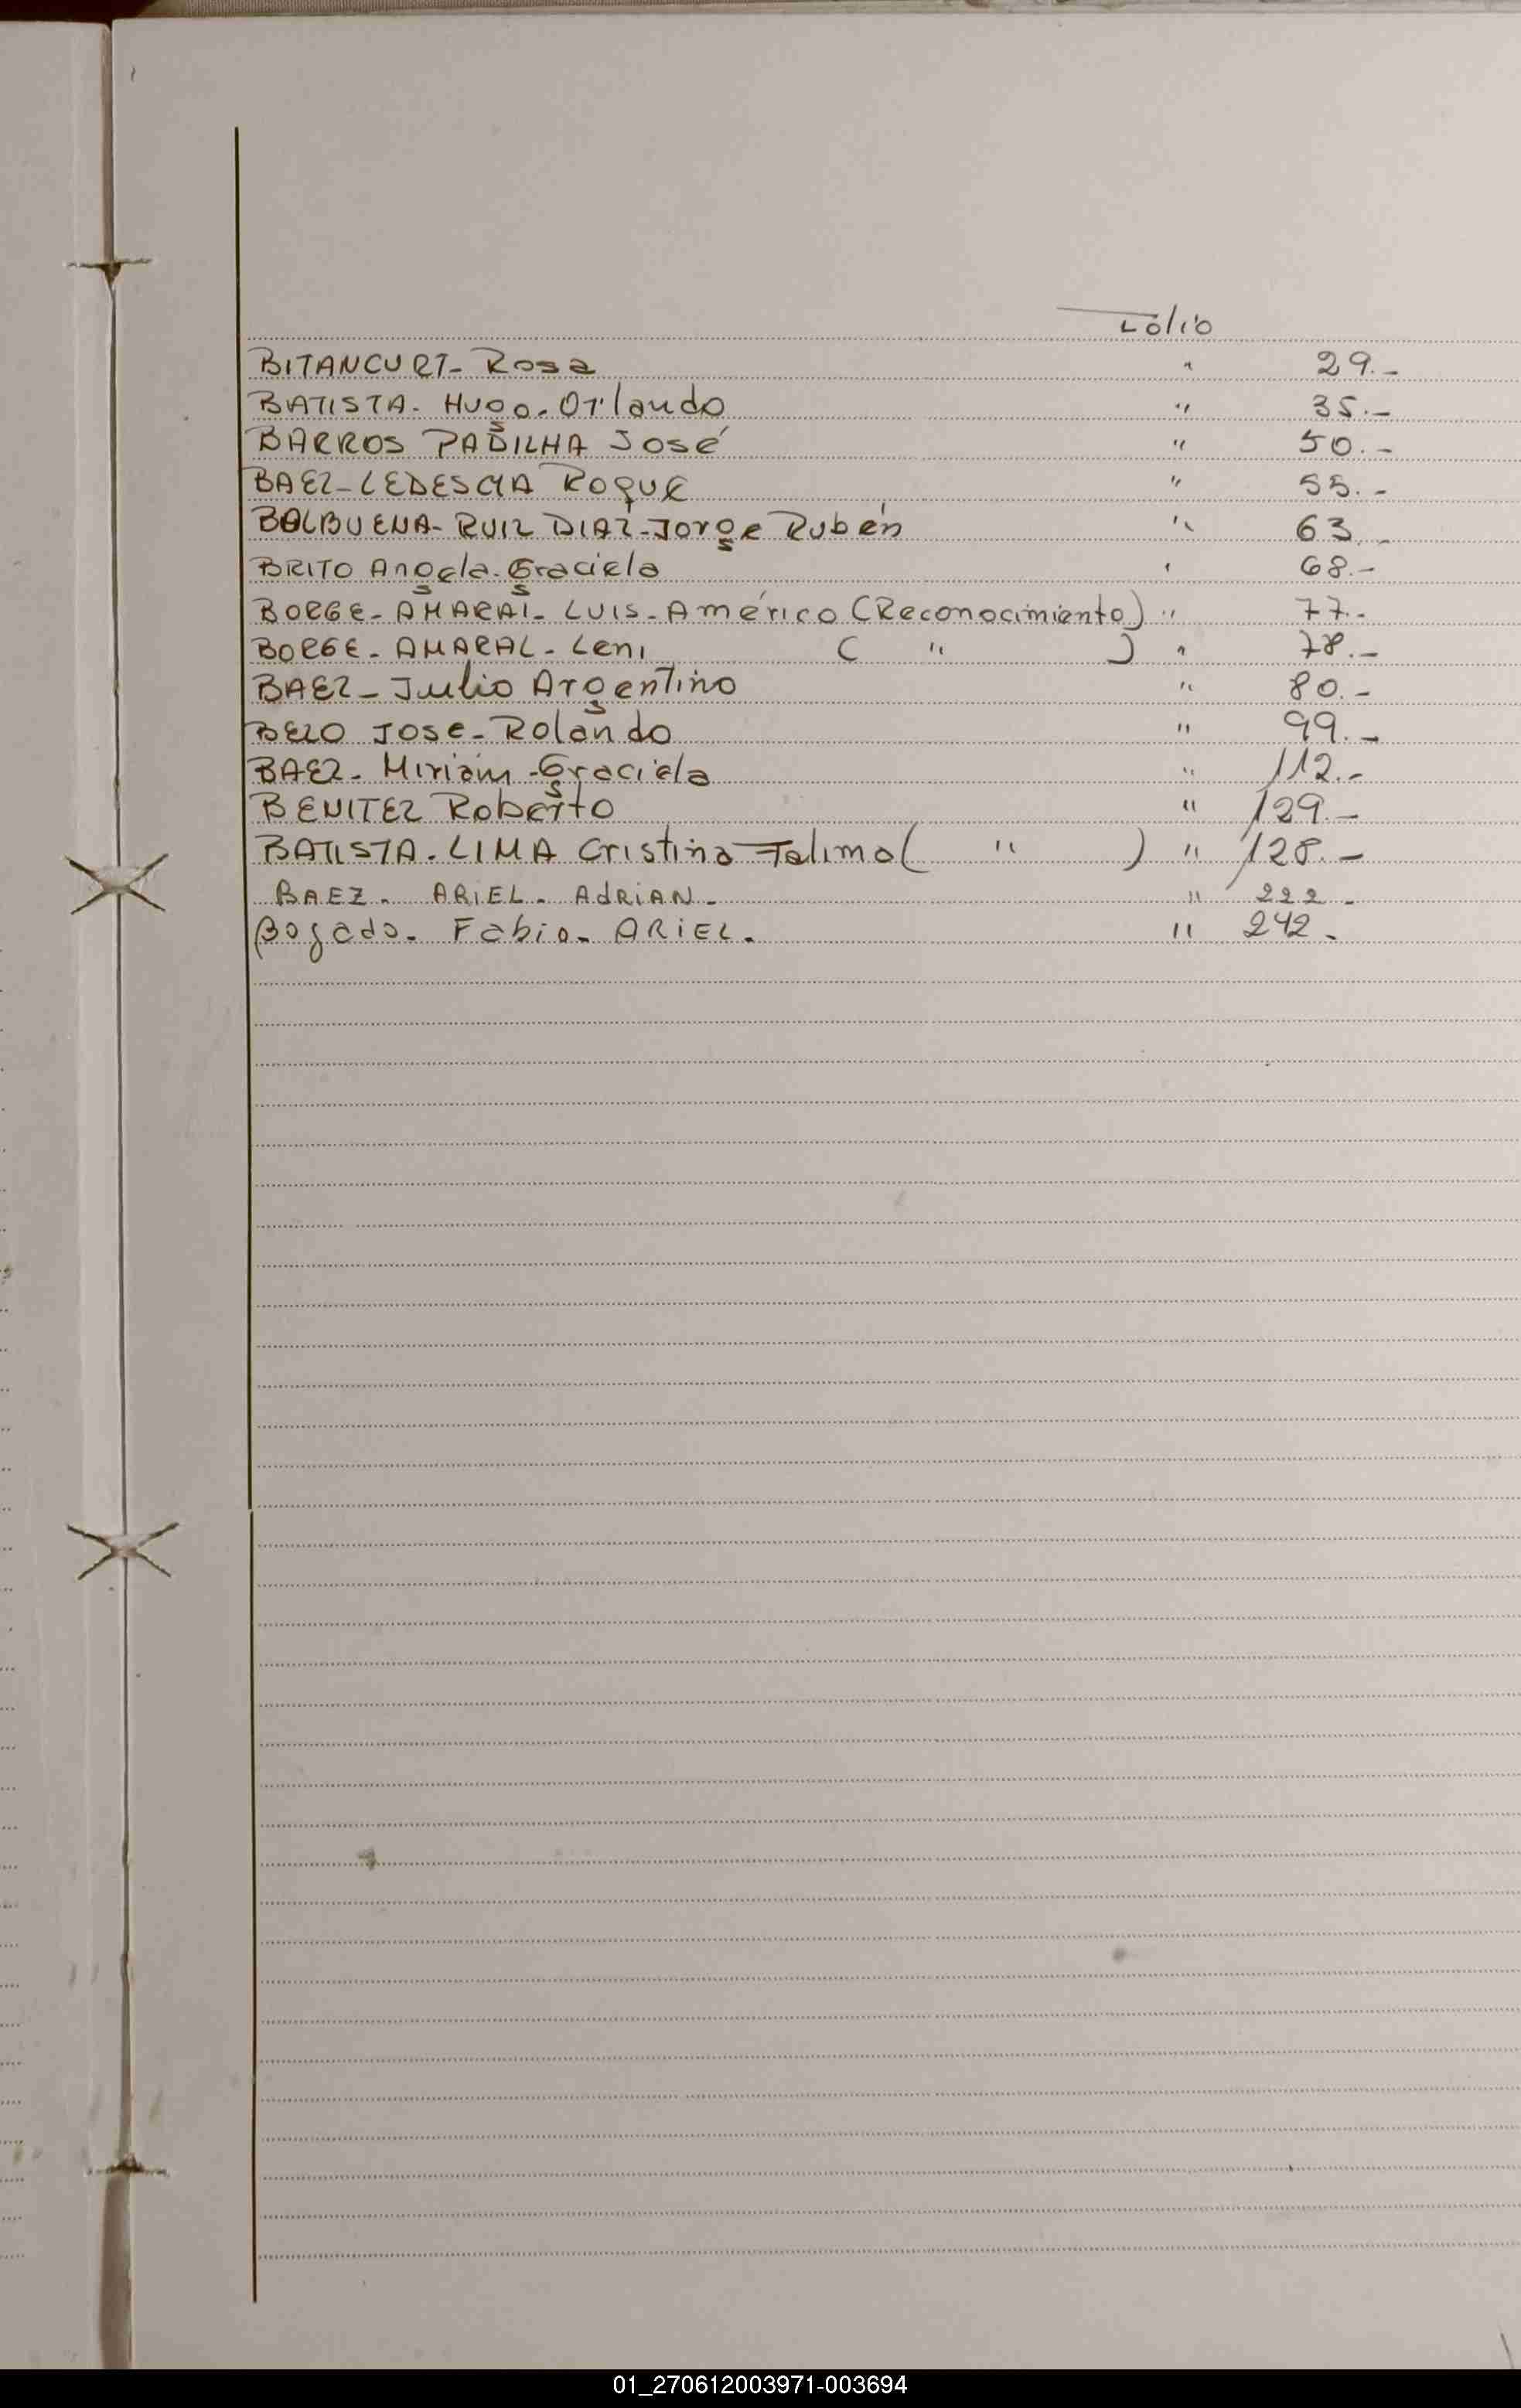 Folio
BITANCURT- Rosa " 29.-
BATISTA- Hugo- Orlando " 35.-
BARROS PADILHA José " 50.-
BAEZ-LEDESMA ROQUE " 55.-
BALBUENA-RUIZ DIAZ-Jorge Rubén " 63.-
BRITO Angela-Graciela " 68.-
BORGE-AMARAL-LUIS-Américo (Reconocimiento) " 77.-
BORGE-AMARAL-Leni ( " ) " 78.-
BAEZ-Julio Argentino " 80.-
BEZO Jose-Rolando " 99.-
BAEZ-Miriam-Graciela " 112.-
BENITEZ Roberto " 129.-
BATISTA-LIMA Cristina ( " ) " 128.-
BAEZ- ARIEL- AdRiAN- " 222-
Bogado- Fabio- ARiEL. " 242-
01_270612003971-003694